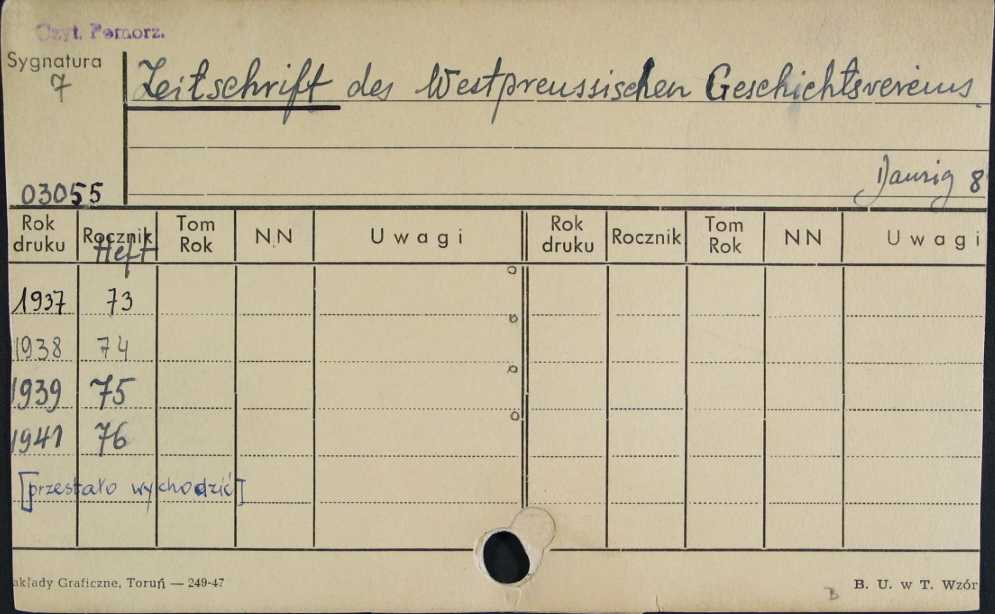 Czyt. Pomorz.
Sygnatura
7
Zeitschrift des Westpreussischen Geschichtsvereins.
Danzig 8
03055
Rok druku Rocznik Heft Tom Rok NN Uwagi Rok druku Rocznik Tom Rok NN Uwagi
1937 73
1938 74
1939 75
1941 76
[przestało wychodzić]
akłady Graficzne, Toruń — 249-47 B. U. w T. Wzór
B